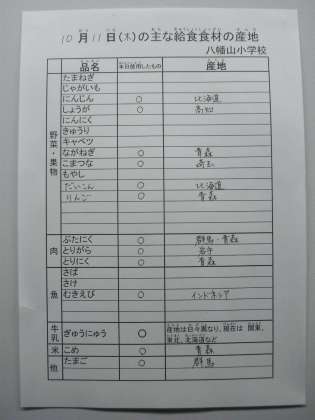 10月11日(木)の主な給食食材の産地
八幡山小学校
品名 本日使用したもの 産地
野菜・果物
たまねぎ
じゃがいも
にんじん ○ 北海道
しょうが ○ 高知
にんにく
きゅうり
キャベツ
ながねぎ ○ 青森
こまつな ○ 埼玉
もやし
だいこん ○ 北海道
りんご ○ 青森
肉
ぶたにく ○ 群馬・青森
とりがら ○ 岩手
とりにく ○ 青森
魚
さば
さけ
むきえび ○ インドネシア
牛乳 ぎゅうにゅう ○ 産地は日々異なり、現在は 関東、
東北、北海道など
米 こめ ○ 青森
他 たまご ○ 群馬